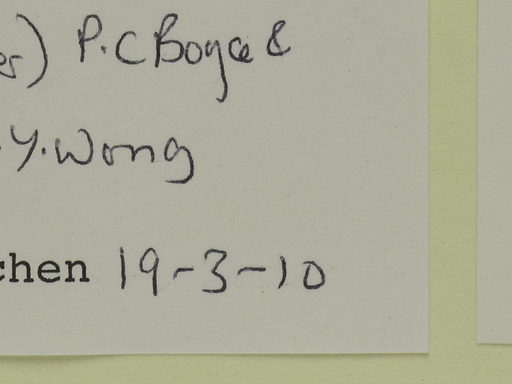 es) P.C Boyce &
.Y. Wong
chen 19-3-10